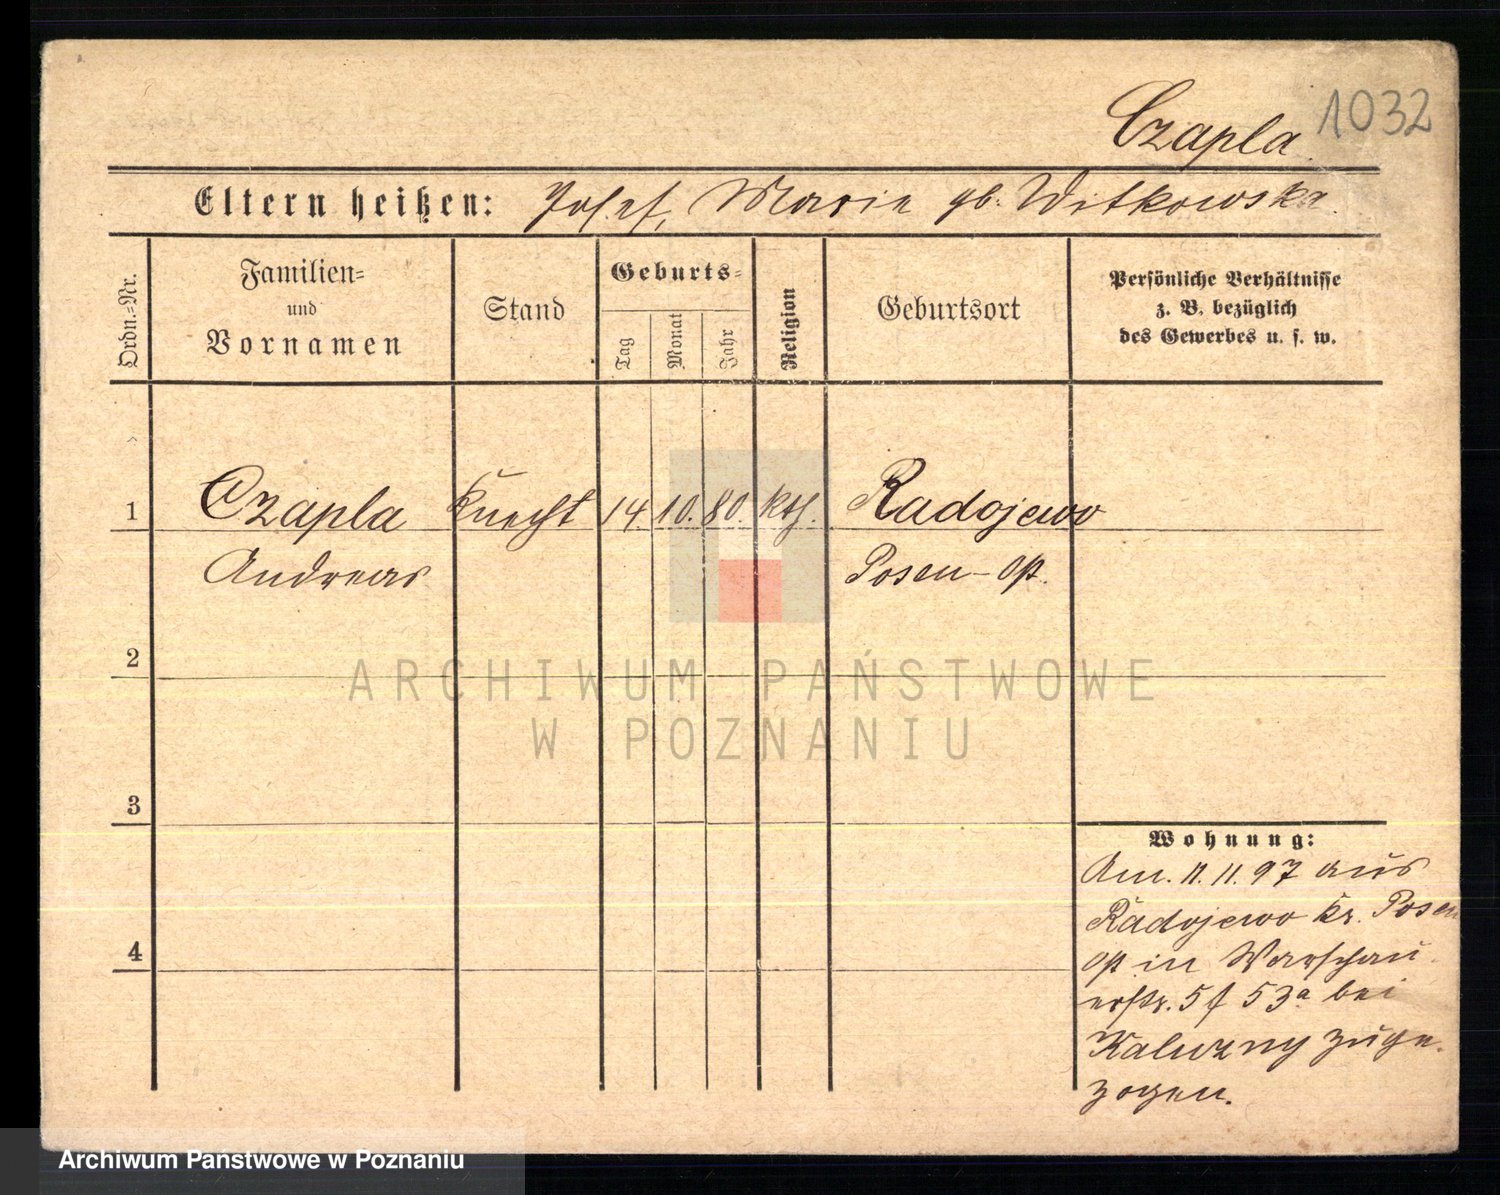 Czapla 1032
Eltern heißen: Josef, Marie gb. Witkowska
Ordn.-Nr.
Familien-
und
Vornamen
Stand
Geburts-
Tag
Monat
Jahr
Religion
Geburtsort
Persönliche Verhältnisse
z. B. bezüglich
des Gewerbes u. s. w.
1 Czapla Knecht 14. 10. 80. kth. Radojewo
Andreas Posen-Ost.
2
ARCHIWUM PAŃSTWOWE
W POZNANIU
3
Wohnung:
Am. 11. 11. 97 aus
Radojewo Kr. Posen
4
Ost in Warschau
erstr. 53a bei
Kaluzny zuge-
zogen.
Archiwum Państwowe w Poznaniu